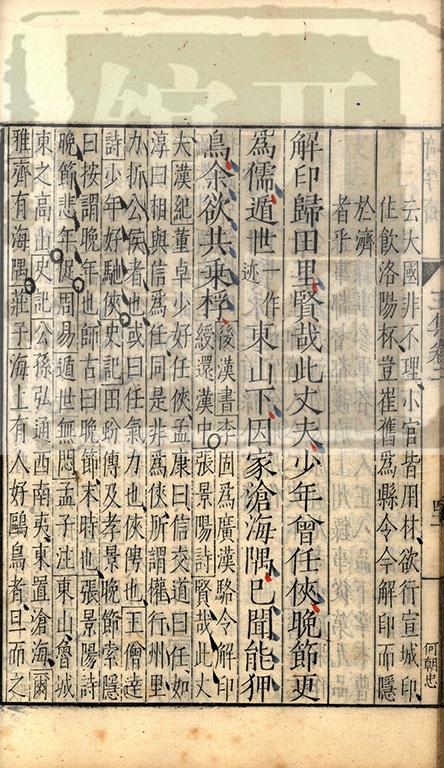 云大國非不理小官皆用材欲行宣城印
住飲洛陽杯豈崔舊為縣令今解印而隱
於濟
者乎
解印歸田里賢哉此丈夫少年曾任俠晚節更
為儒遁世一作迹東山下因家滄海隅已聞能狎
鳥余欲共乘桴後漢書李固為廣漢雒令解印
綬還漢中張景陽詩賢哉此丈
夫漢紀董卓少好任俠孟康曰信交道曰任如
淳曰相與信為任同是非為俠所謂權行州里
力折公侯者也或曰任氣力也俠俜也王僧達
詩少年好馳俠史記田蚡傳及孝景晚節索隱
曰按謂晚年也師古曰晚節末時也張景陽詩
晚節悲年促周易遁世無悶孟子注東山魯城
東之高山史記公孫弘通西南夷東置滄海爾
雅齊有海隅莊子海上有人好鷗鳥者旦而之
何朝忠